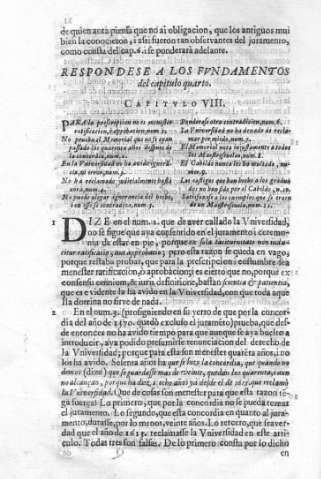 de quien acta piensa que no ai obligacion, que los antiguos mui
bien la conocieron, i assi fueron tan observantes del juramento,
como consta del cap. 6. i se ponderarà adelante.
RESPONDESE A LOS FVNDAMENTOS
del capitulo quarto.
CAPITVLO VIII.
PARA la prescripcion no es menester
ratificacion, i approbacion, num. 1.
No prueba el Memorial que no se ayan
passado los quarenta años despues de
la concordia, num. 2.
En la Vniversidad no ha avido
No ha reclamado judicialmente hasta
aora, num.
No puede alegar ignorancia del hecho,
Ponderase otra contradicion, num. 6.
La Vniversidad no ha dexado de reclamar
por miedo, num. 7.
El Memorial nota injustamente a todos
los Maesescuelas, num.
El Cabildo nunca los ha
num. 9.
Los castigos que han hecho a los graduados
no han sido por el Cabildo, n. 10.
Satisfacese a los exemplos que se traen
de un Maestrescuela, num. 11.
1 DIZE en el num. 1. que de aver callado la Vniversidad,
no se sigue que aya consentido en el juramento i ceremonia
de estar en pie, porque en sola taciturnitate non inducitur
ratificatio, nam approbatio; pero esta razon se queda en vago,
porque restaba probar, que para la prescripcion i costumbre sea
menester ratificacion, o aprobacion; i es cierto que no, porque ex
consensu omnium, & iuris dispositione, bastan scientia & patientia,
que es evidente la ha avido en la Vniversidad, con que toda aquella
doctrina no sirve de nada.
2 En el num. 3. (prosiguiendo en su yerro de que por la concordia
del año de 1470. quedò excluso el juramento) prueba, que desde
entonces no ha avido tiempo para que aunque se aya buelto a
introducir, aya podido presumirse renunciacion del derecho de
la Vniversidad; porque para esta son menester quarēta años, i no
los ha avido. Solenta años ha que se hizo la concordia, que quando no
demos (dize) que se guardasse mas de veinte, quedan los quarenta, i aun
no alcançan, porque ha diez, i ocho años ya desde el de 1617. que reclamò
la Vniversidad. Que de cosas son menester para que esta razon tenga
fuerça! Lo primero, que por la concordia no se pueda tomar
el juramento. Lo segundo, que esta concordia en quanto al juramento,
durasse, por lo menos, veinte años. Lo tercero, que sea verdad
que el año de 1617. reclamasse la Vniversidad en este articulo.
Todas tres son falsas. De lo primero consta por lo dicho
en